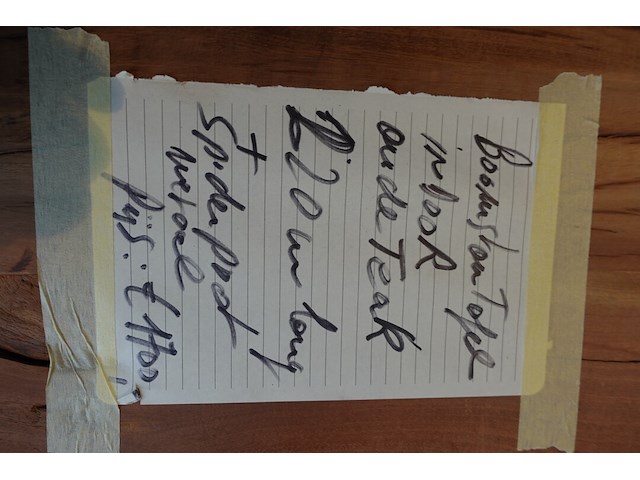 Boomstam Tafel
indooR
oude Teak
210 cm long
+ Spiderpoot
metaal
prijs: € 1700